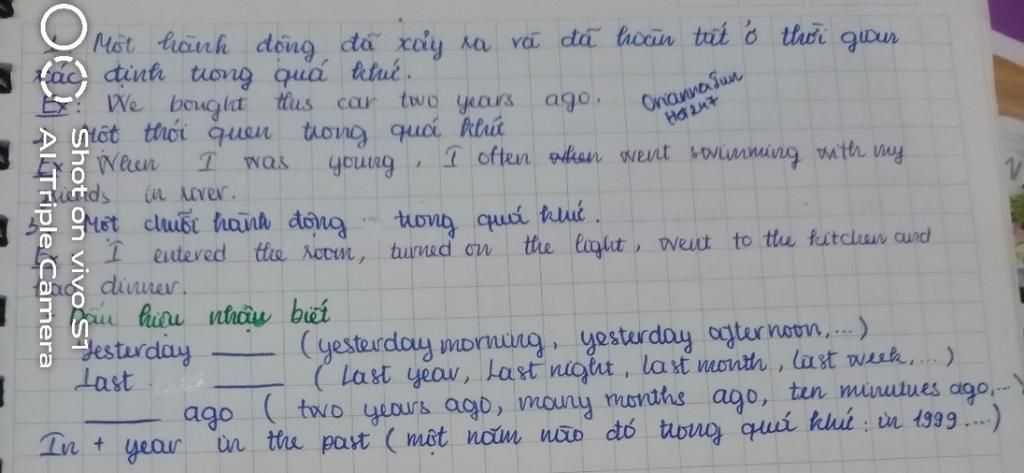 Một hành động đã xảy ra và đã hoàn tất ở thời gian
xác định trong quá khứ.
Ex: We bought this car two years ago.
OriannaSun
Một thói quen trong quá khứ
Ex When I was young, I often when went swimming with my
friends in river.
3 Một chuỗi hành động trong quá khứ.
Ex I entered the room, turned on the light, went to the kitchen and
had dinner.
Dấu hiệu nhận biết
Yesterday ____ (yesterday morning, yesterday afternoon,...)
Last ____ (Last year, Last night, last month, last week,...)
____ ago (two years ago, many months ago, ten minutues ago,...)
In + year in the past (một năm nào đó trong quá khứ: in 1999....)
Shot on vivo S1
AI Triple Camera